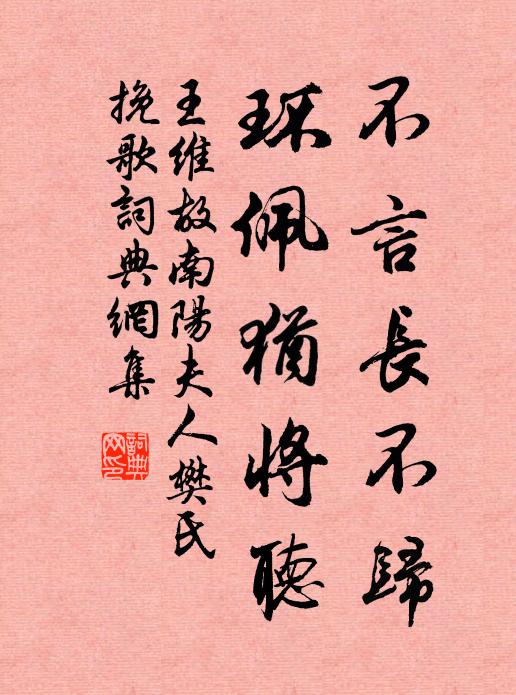 不言長不歸
環佩猶將聽
王維故南陽夫人樊氏
挽歌詞典網集
詞典
网印